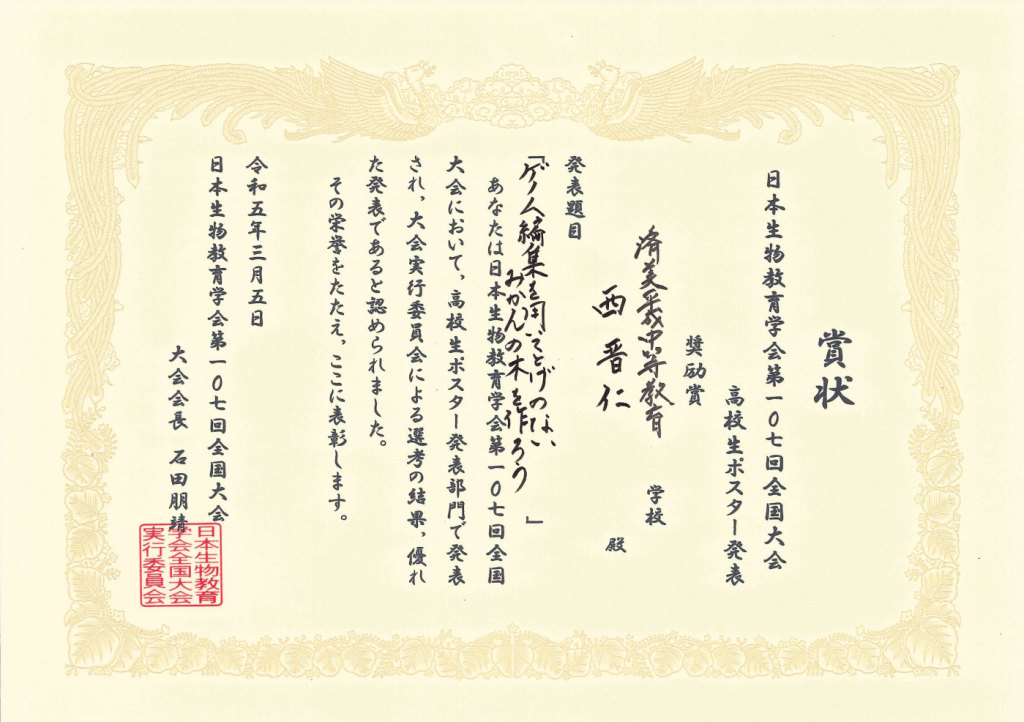 賞状
日本生物教育学会第一〇七回全国大会
高校生ポスター発表
奨励賞
済美平成中等教育 学校
西晋仁 殿
発表題目
「ゲノム編集を用いてとげのない
みかんの木を作ろう」
あなたは日本生物教育学会第一〇七回全国
大会において、高校生ポスター発表部門で発表
され、大会実行委員会による選考の結果、優れ
た発表であると認められました。
その栄誉をたたえ、ここに表彰します。
令和五年三月五日
日本生物教育学会第一〇七回全国大会
大会会長 石田朋靖
日本生物教育
学会全国大会
実行委員会